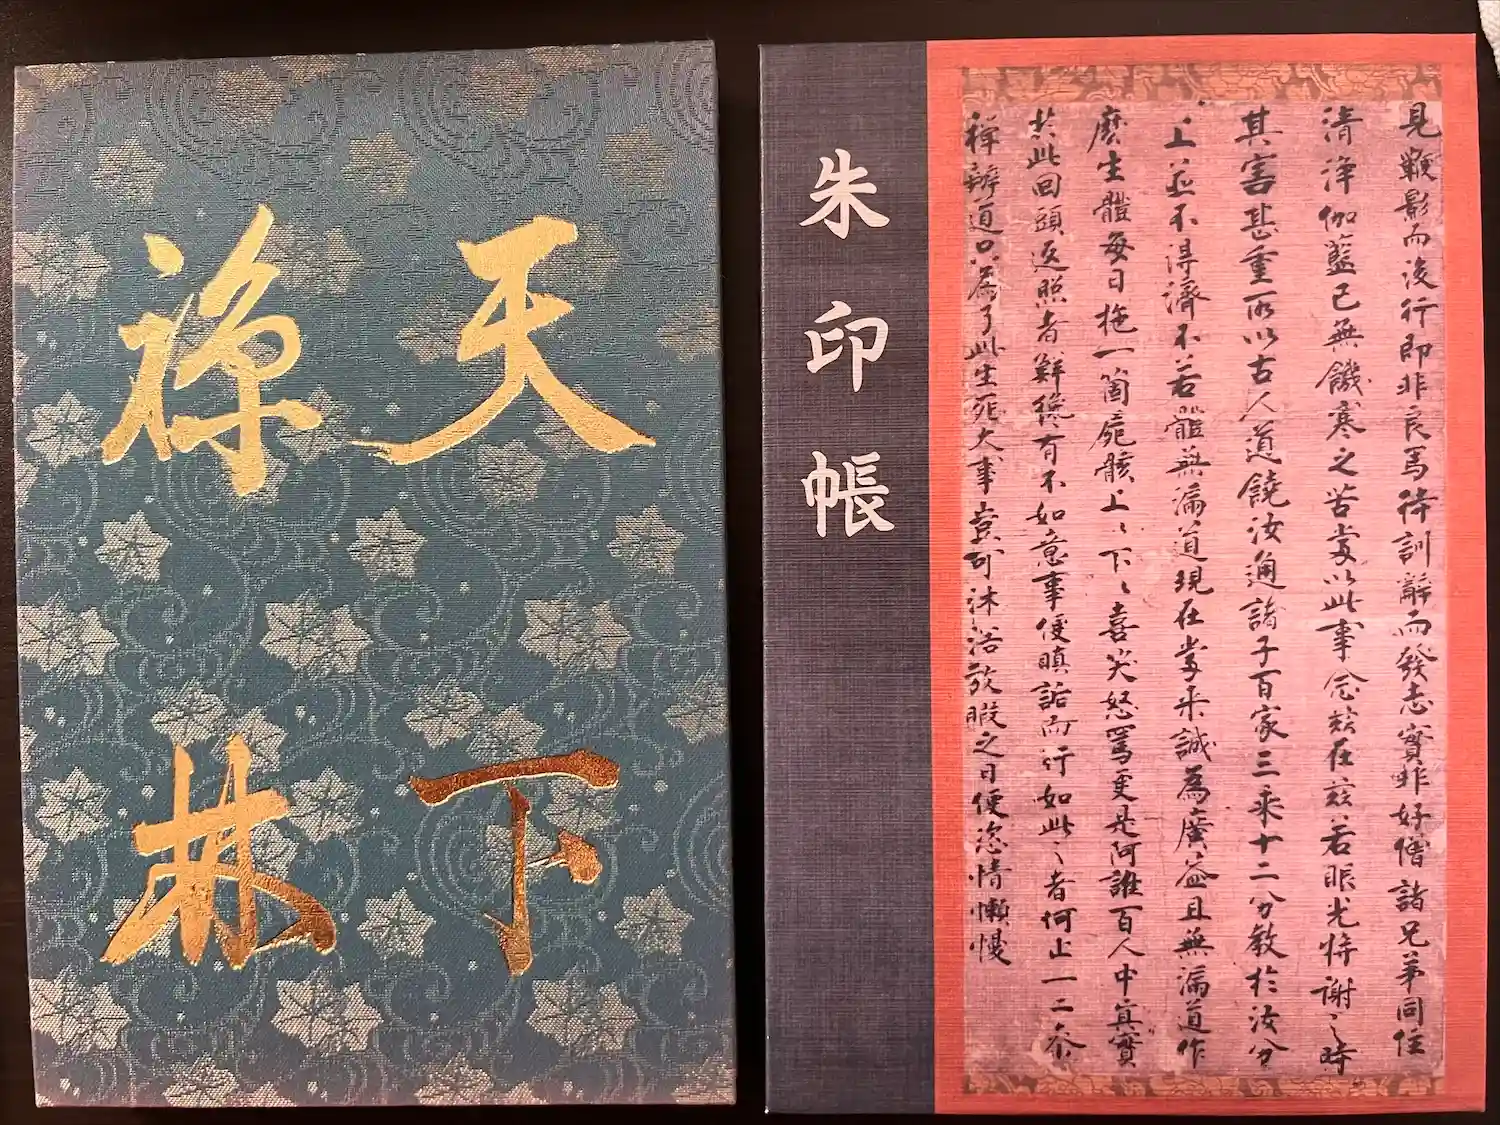 天下
禅林
朱印帳
見鞭影而後行即非良馬待訓辭而發志實非好僧諸兄弟同住
清淨伽藍已無饑寒之苦當以此事念茲在茲若眼光将謝之時
其害甚重所以古人道饒汝通諸子百家三乘十二分教於汝分
上並不得濟不若體無漏道現在當来誠為廣益且無漏道作
麼生體每日拖一箇屍骸上〻下〻喜笑怒罵更是阿誰百人中真實
於此回頭返照者鮮纔有不如意事便瞋詬而行如此之者何止一二参
禪辦道只為了此生死大事豈可沐浴放暇之日便恣情懶慢